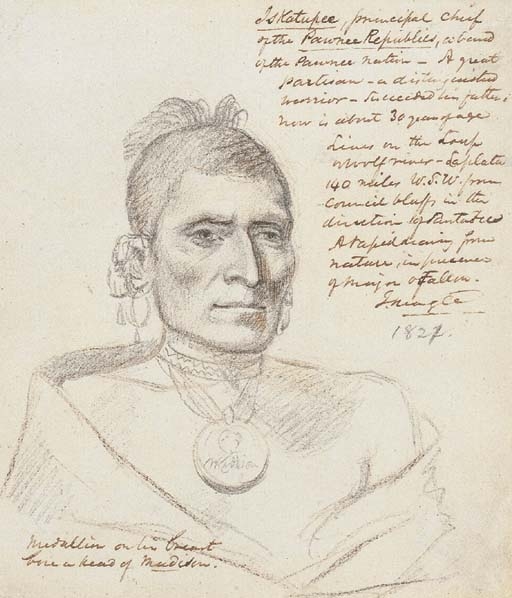 Iskatupee, principal chief
of the Pawnee Republics, a band
of the Pawnee nation – A great
partisan – a distinguished
warrior – Succeeded his father;
now is about 30 years of age
Lives on the Loup
or Wolf river – Laplata
140 miles W.S.W. from
Council bluffs in the
direction of
A rapid drawing from
nature, in presence
of Major O'Fallon.
1821.
Madison
Medallion on his breast
bore a head of Madison.